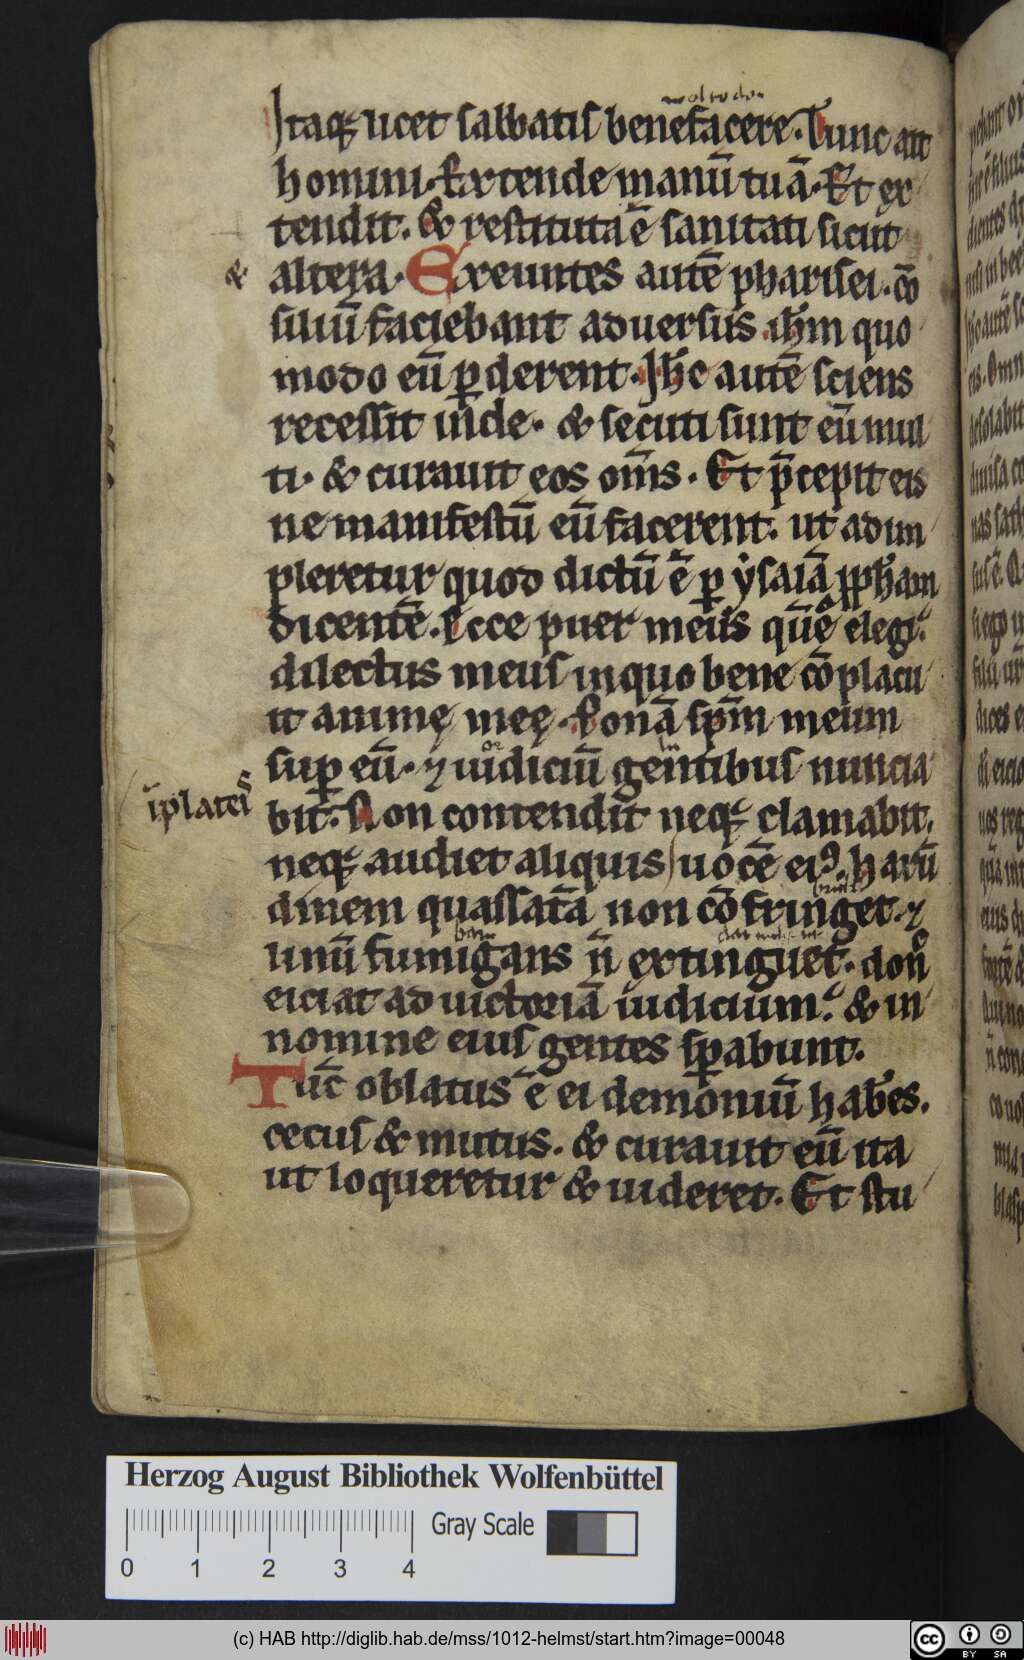 Itaq; licet sabbatis benefacere. Tunc ait
homini. Extende manū tuā. Et ex
tendit. & restituta ē sanitati sicut
& altera. Exeuntes autē pharisei. cō
siliū faciebant aduersus ih̄m quo
modo eū ꝑderent. Ih̄c autē sciens
recessit inde. & secuti sunt eū mul
ti. & curauit eos om̄s. Et p̄cepit eis
ne manifestū eū facerent. ut adim
pleretur quod dictū ē ꝑ ysaiā ꝓph̄am
dicentē. Ecce puer meus quē elegi.
dilectus meus in quo bene cōplacu
it animę meę. Ponā sp̄m meum
suꝑ eū. ⁊ iudiciū gentibus nuncia
bit. Non contendit neq; clamabit.
i plateis
neq; audiet aliquis uocē ei⁹. harū
dinem quassatā non cōfringet. ⁊
linū fumigans n̄ extinguet. don̄
eiciat ad uictoriā iudicium. & in
nomine eius gentes sꝑabunt.
Tūc oblatus ē ei demoniū hab̄es.
cecus & mutus. & curauit eū ita
ut loqueretur & uideret. Et stu
Herzog August Bibliothek Wolfenbüttel
Gray Scale
0 1 2 3 4
(c) HAB http://diglib.hab.de/mss/1012-helmst/start.htm?image=00048
cc BY SA